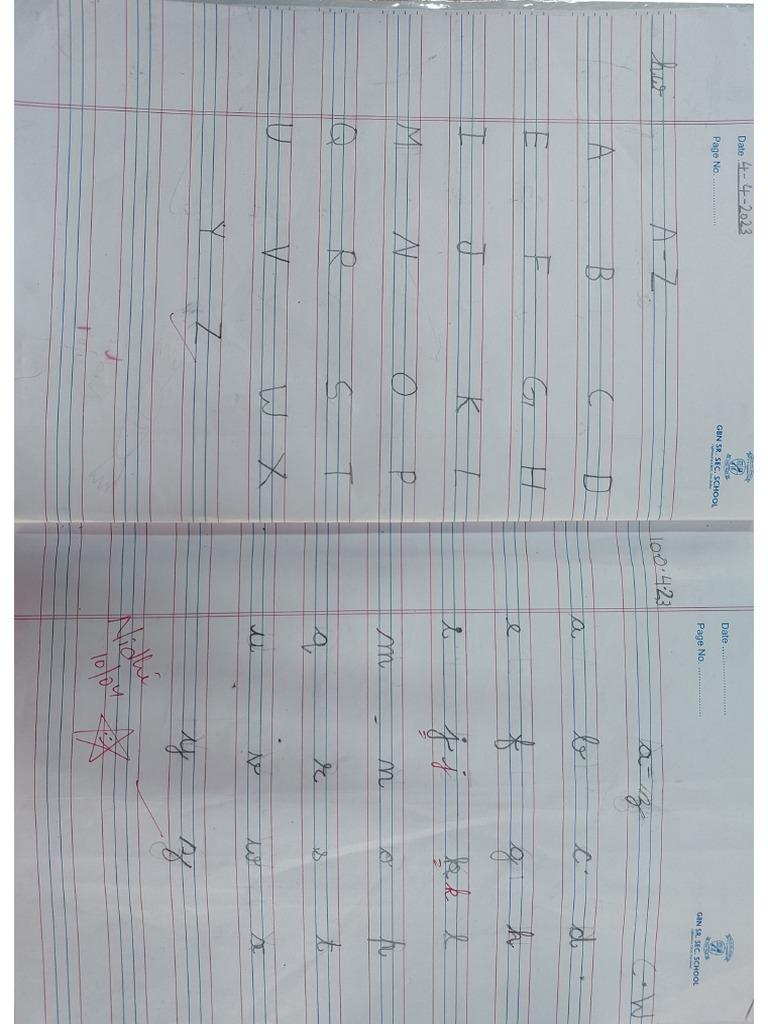 Date 4-4-2023
Page No. ...............
GBN SR. SEC. SCHOOL
h.w
A-Z
A B C D
E F G H
I J K L
M N O P
Q R S T
U V W X
Y Z
Date ........................
Page No. ...............
GBN SR. SEC. SCHOOL
10.0.4.23
a-z
C.W
a b c d
e f g h
i j j k k l
m n o p
q r s t
u v w x
y z
Nidhi
10/04